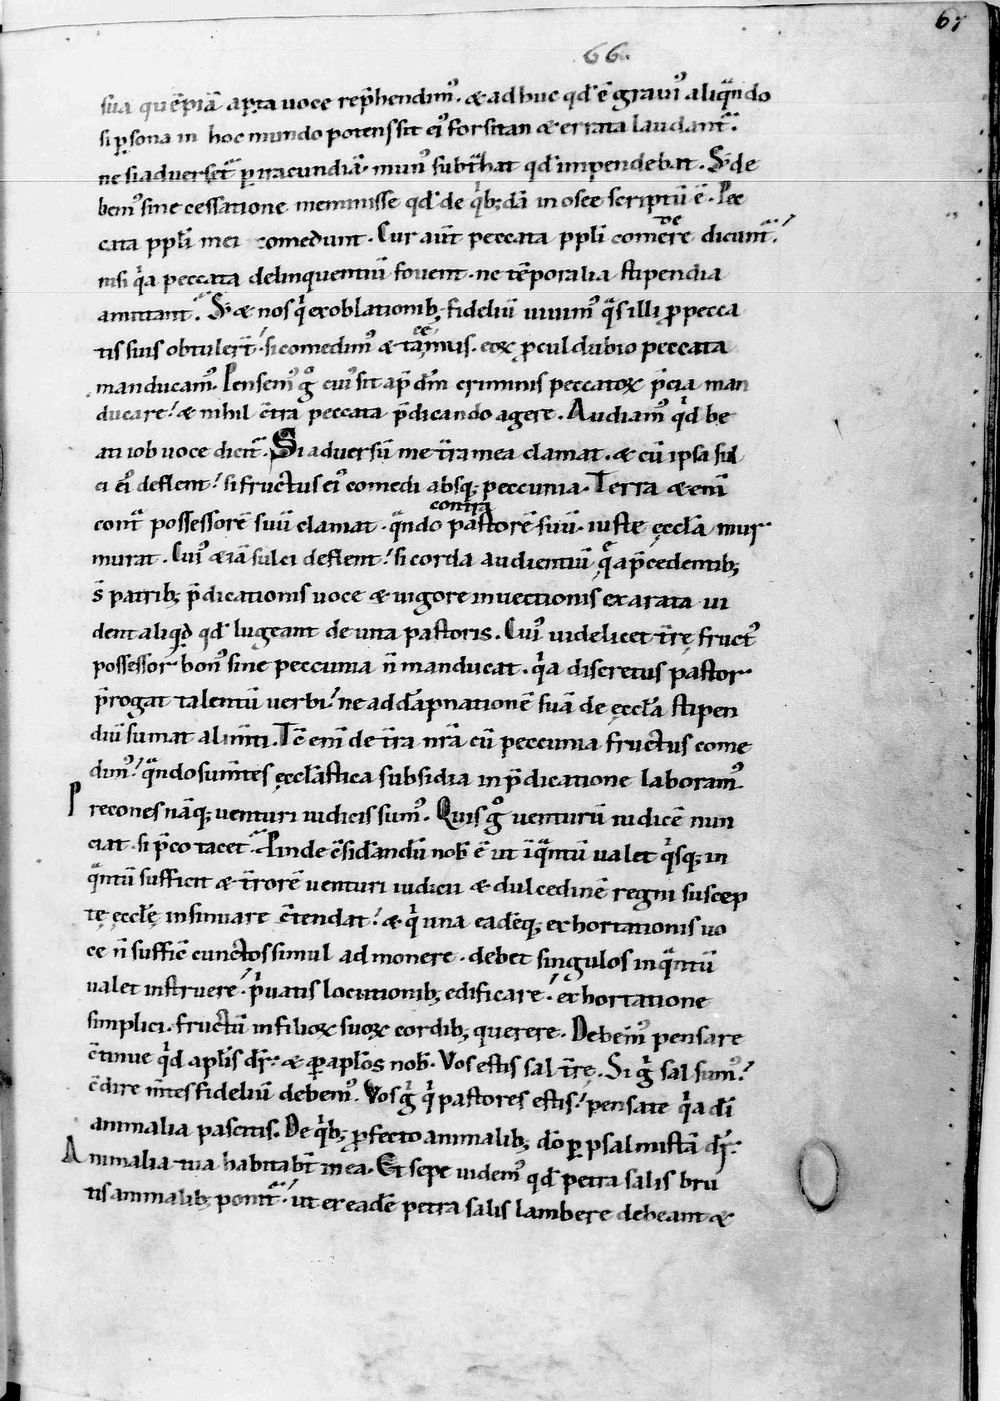 67
66.
sua quēpiā aꝑta uoce rep̄hendim᷒. & adhuc qđ ē grauiꝰ aliqᷓndo
si ꝑsona in hoc mundo potens sit eiꝰ forsitan & errata laudant᷑.
ne si aduerset᷑ ꝑ iracundiā. munꝰ subt̄hat qđ impendebat. S; de
bemꝰ sine cessatione meminisse qđ de qͥb;dā in osee scriptū ē. Pec
cata ppłi mei comedunt. Cur aūt peccata ppłi comedere dicunt᷑?
nisi qͥa peccata delinquentiū fouent. ne tēporalia stipendia
amittant᷑. S; & nos qͥ ex oblationib; fideliū uiuimꝰ qᷓs illi ꝓ pecca
tis suis obtulert̄. si comedimꝰ & tacemus. eoꝝ ꝓcul dubio peccata
manducamꝰ. Pensemꝰ gͦ cuiꝰ sit ap̄ dm̄ criminis peccatoꝝ p̄cia man
ducare. & nihil c̄tra peccata p̄dicando agere. Audiamꝰ qͥd be
ati iob uoce dicit᷑. Si aduersū me t̄ra mea clamat. & cū ipsa sul
ci eiꝰ deflent. si fructus eiꝰ comedi absq; peccunia. Terra & enī
cont᷑ possessorē suū clamat. qᷓndo contra pastorē suū. iuste ęccła mur
murat. Cuiꝰ &iā sulci deflent. si corda audientiū qᷓ a p̄cedentib;
s̄ patrib; p̄dicationis uoce & uigore inuectionis exarata ui
dent aliqͥd qđ lugeant de uita pastoris. Cuiꝰ uidelicet t̄rę fructꝰ
possessor bonꝰ sine peccunia n̄ manducat. qͥa discretus pastor
p̄rogat talentū uerbi. ne ad dāpnationē suā de ęccła stipen
diū sumat alim̄ti. Tc̄ enī de t̄ra nr̄a cū peccunia fructus come
dimꝰ. qᷓndo sum̄tes ęccłastica subsidia in p̄dicatione laboramꝰ.
Precones nāq; uenturi iudicis sumꝰ. Quis gͦ uenturū iudicē nun
ciat. si p̄co tacet᷑. Pinde c̄sid̄andū nob̄ ē ut īqᷓntū ualet qͥsq; in
qᷓntū sufficit & t̄rorē uenturi iudicii & dulcedinē regni suscep
tę ęccłę insinuare c̄tendat. & qͥ una eadēq; exhortationis uo
ce n̄ suffic̄ cunctos simul admonere. debet singulos inqᷓntū
ualet instruere. pͥuatis locutionib; edificare. exhortatione
simplici. fructū in filioꝝ suoꝝ cordib; querere. Debemꝰ pensare
c̄tinue qͥd apłis dr̄. & ꝑ apłos nob̄. Vos estis sal t̄rę. Si gͦ sal sumꝰ.
c̄dire m̄tes fideliū debemꝰ. Vos gͦ qͥ pastores estis. pensate qͥa dī
animalia pascitis. De qͥb; ꝓfecto animalib; dō ꝑ psalmistā dr̄.
Animalia tua habitabt̄ in ea. Et sepe uidemꝰ qđ petra salis bru
tis animalib; ponit᷑. ut ex eadē petra salis lambere debeant &